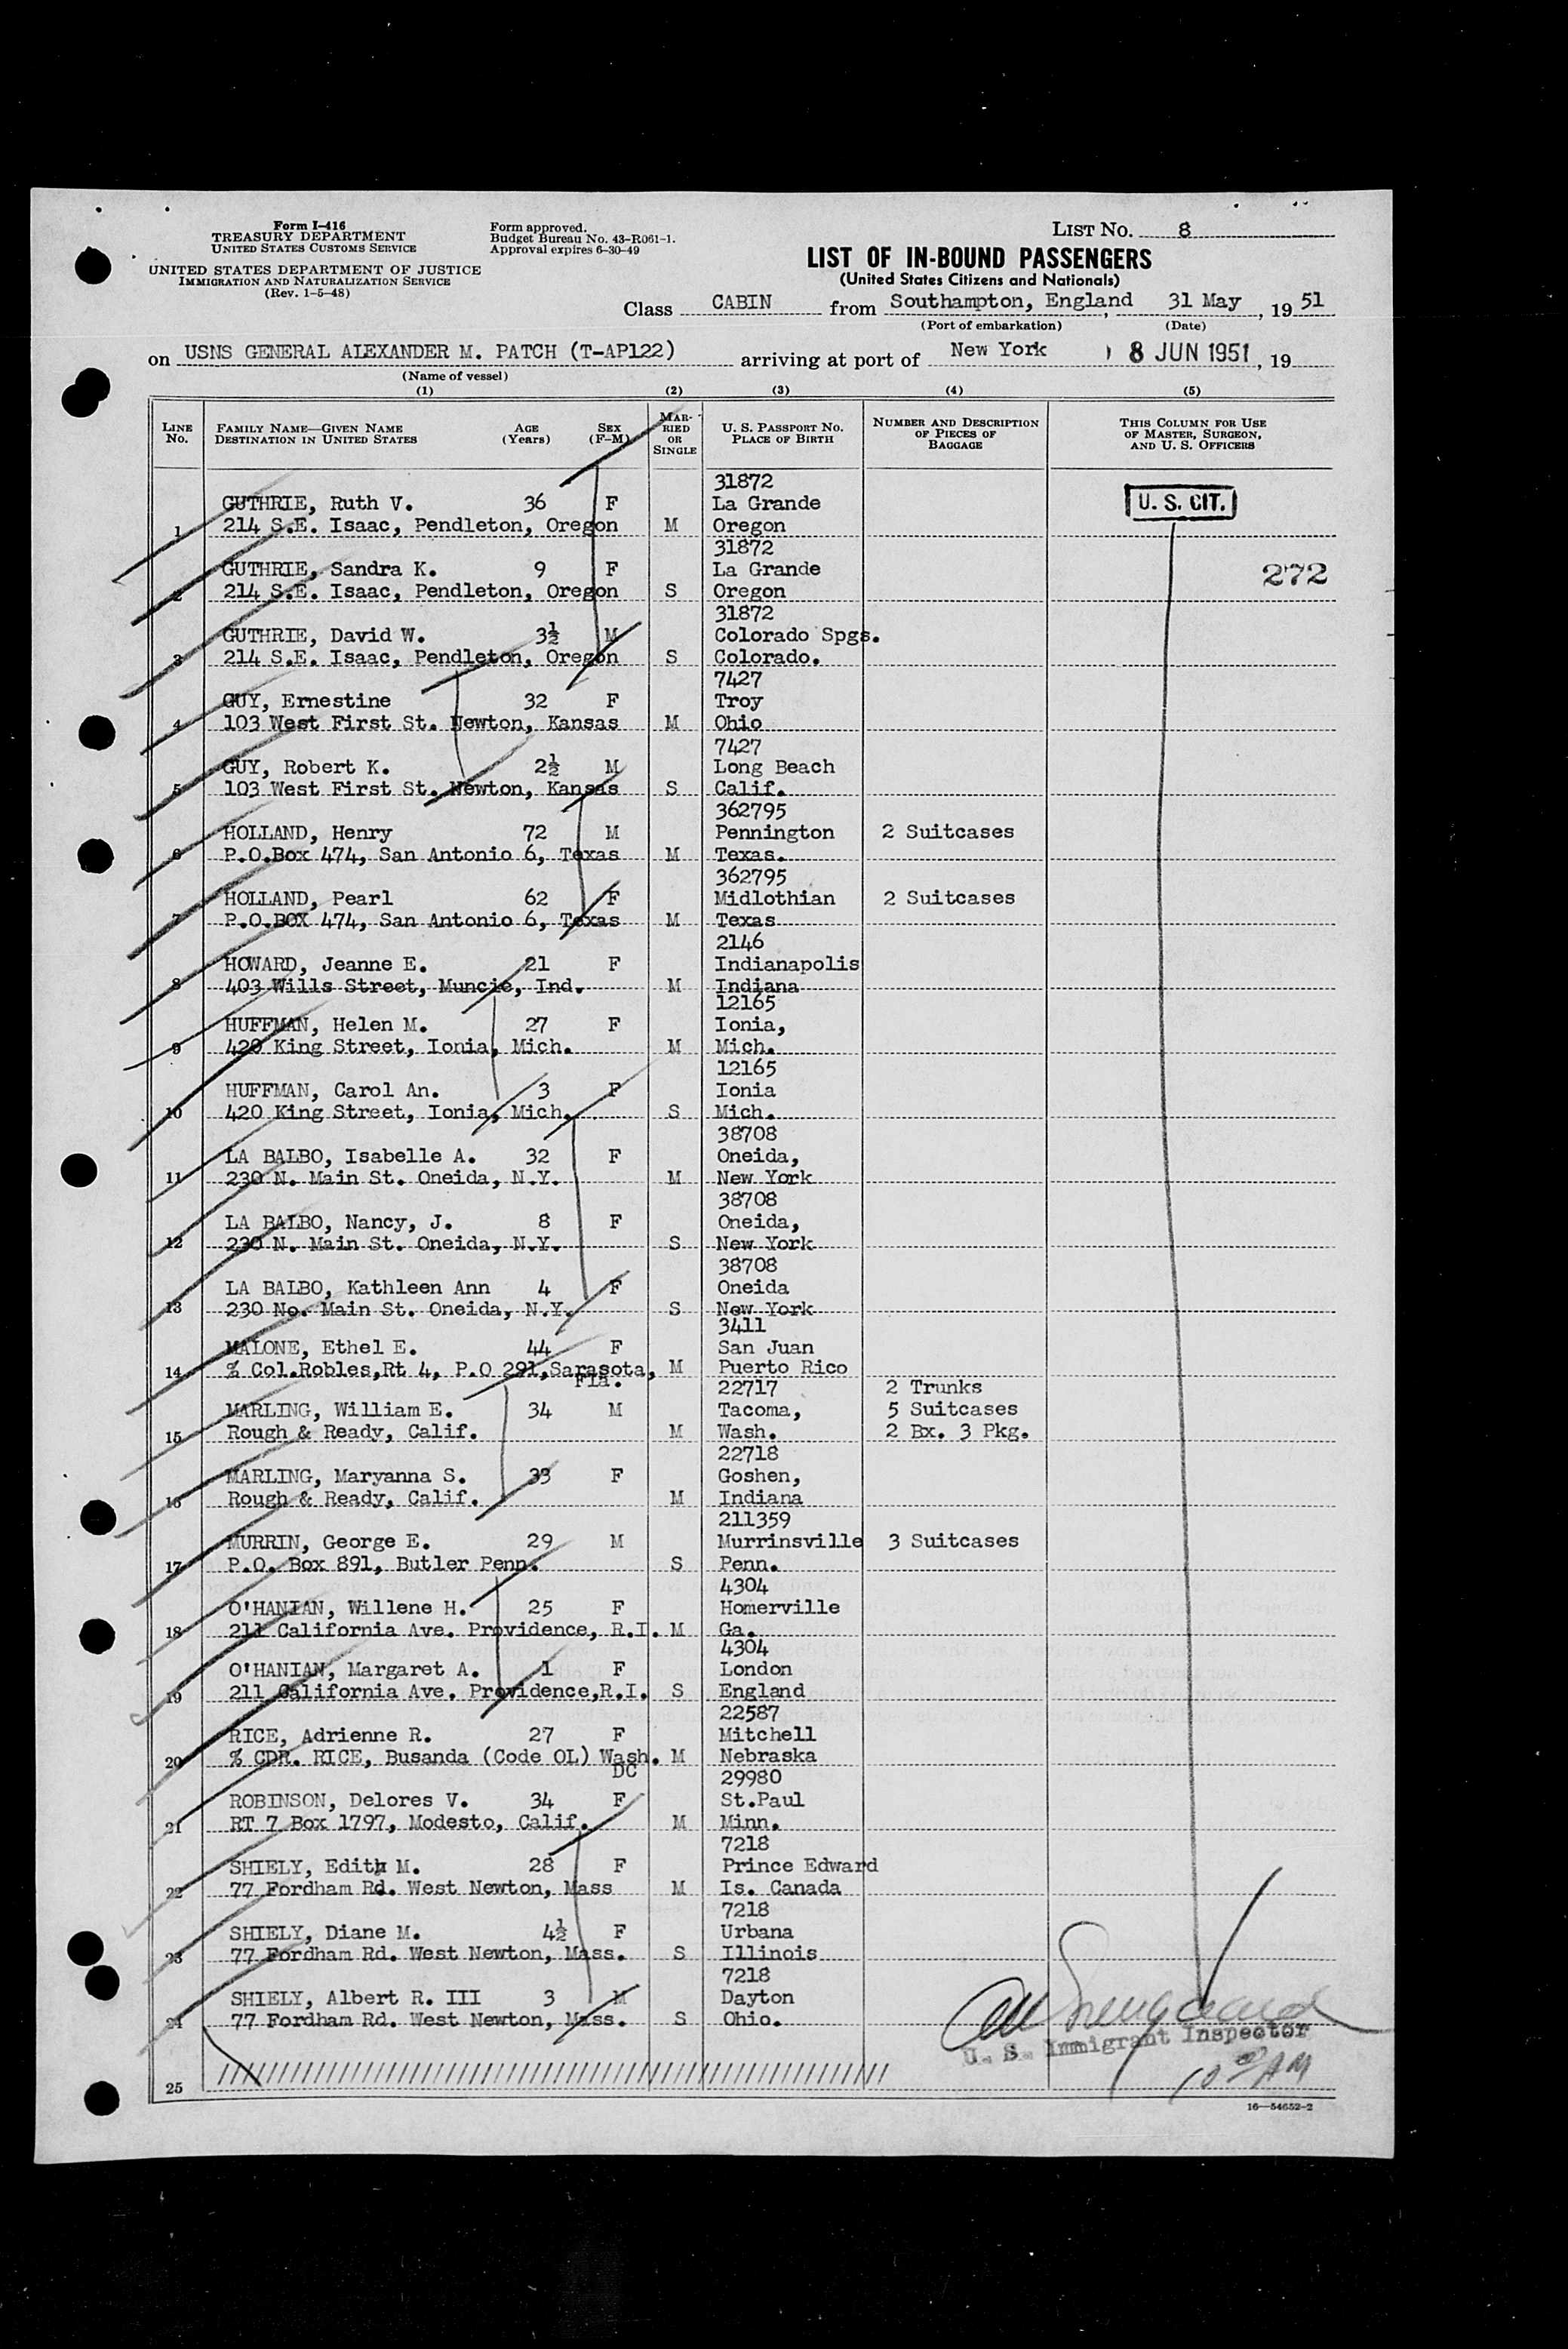 Form I-416
TREASURY DEPARTMENT
UNITED STATES CUSTOMS SERVICE
UNITED STATES DEPARTMENT OF JUSTICE
IMMIGRATION AND NATURALIZATION SERVICE
(Rev. 1-5-48)
Form approved.
Budget Bureau No. 43-R061-1.
Approval expires 6-30-49
LIST No. 8
LIST OF IN-BOUND PASSENGERS
(United States Citizens and Nationals)
Class CABIN from Southampton, England, 31 May, 19 51
(Port of embarkation) (Date)
on USNS GENERAL ALEXANDER M. PATCH (T-AP122) arriving at port of New York 8 JUN 1951, 19
(Name of vessel)
(1) (2) (3) (4) (5)
LINE No. FAMILY NAME—GIVEN NAME DESTINATION IN UNITED STATES AGE (Years) SEX (F-M) MARRIED OR SINGLE U. S. PASSPORT NO. PLACE OF BIRTH NUMBER AND DESCRIPTION OF PIECES OF BAGGAGE THIS COLUMN FOR USE OF MASTER, SURGEON, AND U. S. OFFICERS
31872
GUTHRIE, Ruth V. 36 F La Grande U. S. CIT.
1 214 S.E. Isaac, Pendleton, Oregon M Oregon
31872
GUTHRIE, Sandra K. 9 F La Grande 272
2 214 S.E. Isaac, Pendleton, Oregon S Oregon
31872
GUTHRIE, David W. 3½ M Colorado Spgs.
3 214 S.E. Isaac, Pendleton, Oregon S Colorado.
7427
GUY, Ernestine 32 F Troy
4 103 West First St. Newton, Kansas M Ohio
7427
GUY, Robert K. 2½ M Long Beach
5 103 West First St. Newton, Kansas S Calif.
362795
HOLLAND, Henry 72 M Pennington 2 Suitcases
6 P.O.Box 474, San Antonio 6, Texas M Texas.
362795
HOLLAND, Pearl 62 F Midlothian 2 Suitcases
7 P.O.BOX 474, San Antonio 6, Texas M Texas
2146
HOWARD, Jeanne E. 21 F Indianapolis
8 403 Wills Street, Muncie, Ind. M Indiana
12165
HUFFMAN, Helen M. 27 F Ionia,
9 420 King Street, Ionia, Mich. M Mich.
12165
HUFFMAN, Carol An. 3 F Ionia
10 420 King Street, Ionia, Mich. S Mich.
38708
LA BALBO, Isabelle A. 32 F Oneida,
11 230 N. Main St. Oneida, N.Y. M New York
38708
LA BALBO, Nancy, J. 8 F Oneida,
12 230 N. Main St. Oneida, N.Y. S New York
38708
LA BALBO, Kathleen Ann 4 F Oneida
13 230 No. Main St. Oneida, N.Y. S New York
3411
MALONE, Ethel E. 44 F San Juan
14 % Col.Robles,Rt 4, P.O 291,Sarasota, M Puerto Rico
Fla.
22717 2 Trunks
MARLING, William E. 34 M Tacoma, 5 Suitcases
15 Rough & Ready, Calif. M Wash. 2 Bx. 3 Pkg.
22718
MARLING, Maryanna S. 33 F Goshen,
16 Rough & Ready, Calif. M Indiana
211359
MURRIN, George E. 29 M Murrinsville 3 Suitcases
17 P.O. Box 891, Butler Penn. S Penn.
4304
O'HANIAN, Willene H. 25 F Homerville
18 211 California Ave. Providence, R.I. M Ga.
4304
O'HANIAN, Margaret A. 1 F London
19 211 California Ave. Providence,R.I. S England
22587
RICE, Adrienne R. 27 F Mitchell
20 % CDR. RICE, Busanda (Code OL) Wash. M Nebraska
DC
29980
ROBINSON, Delores V. 34 F St.Paul
21 RT 7 Box 1797, Modesto, Calif. M Minn.
7218
SHIELY, Edith M. 28 F Prince Edward
22 77 Fordham Rd. West Newton, Mass M Is. Canada
7218
SHIELY, Diane M. 4½ F Urbana
23 77 Fordham Rd. West Newton, Mass. S Illinois
7218
SHIELY, Albert R. III 3 M Dayton
24 77 Fordham Rd. West Newton, Mass. S Ohio.
U. S. Immigrant Inspector
25
10 AM
16—54652-2